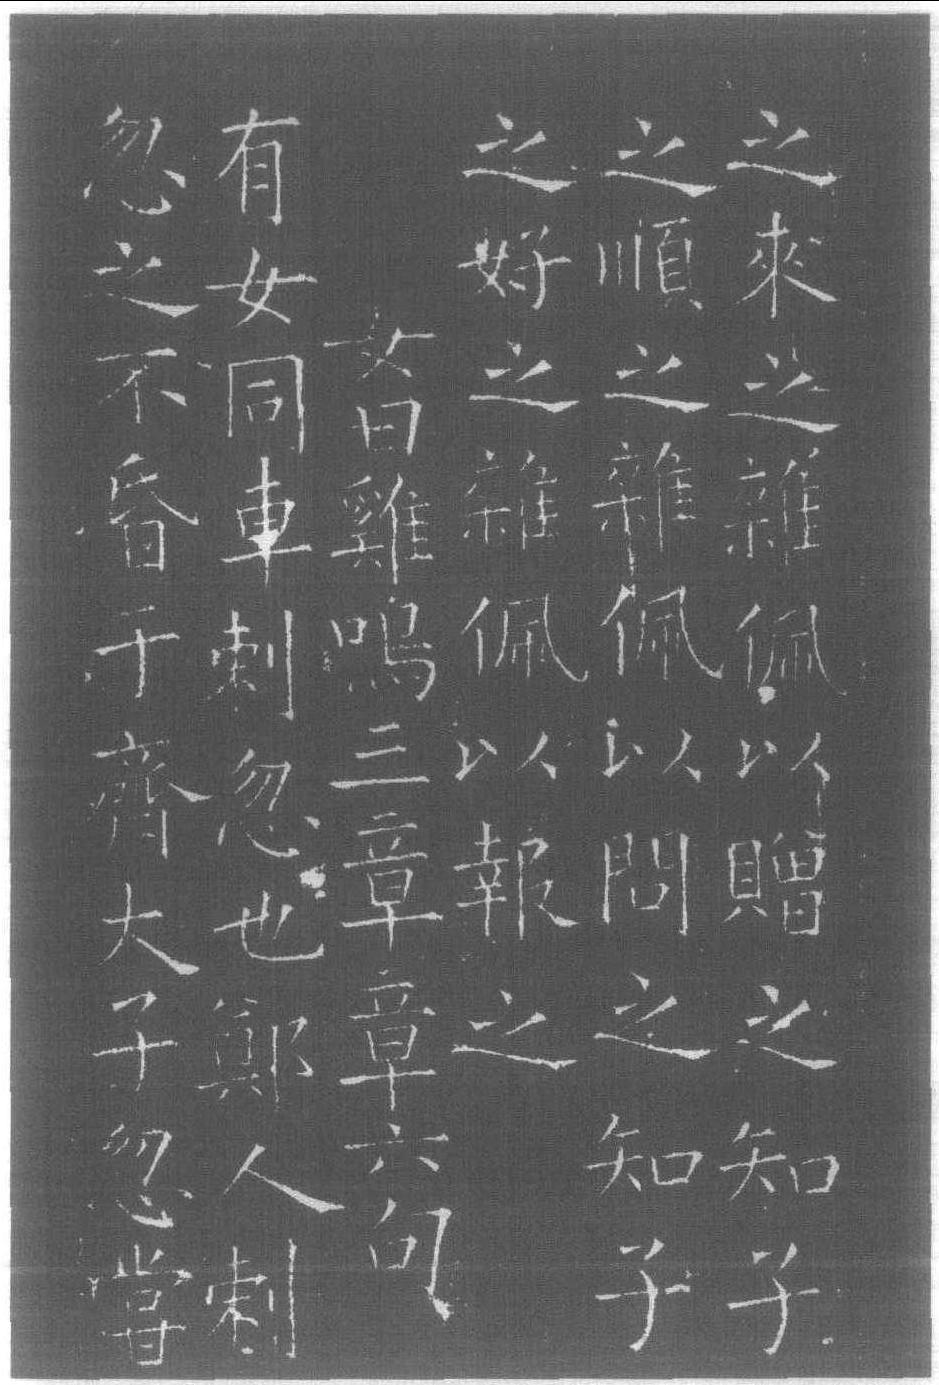 之來之雜佩以贈之知子
之順之雜佩以問之知子
之好之雜佩以報之
女曰雞鳴三章章六句
有女同車刺忽也鄭人刺
忽之不昏于齊大子忽嘗